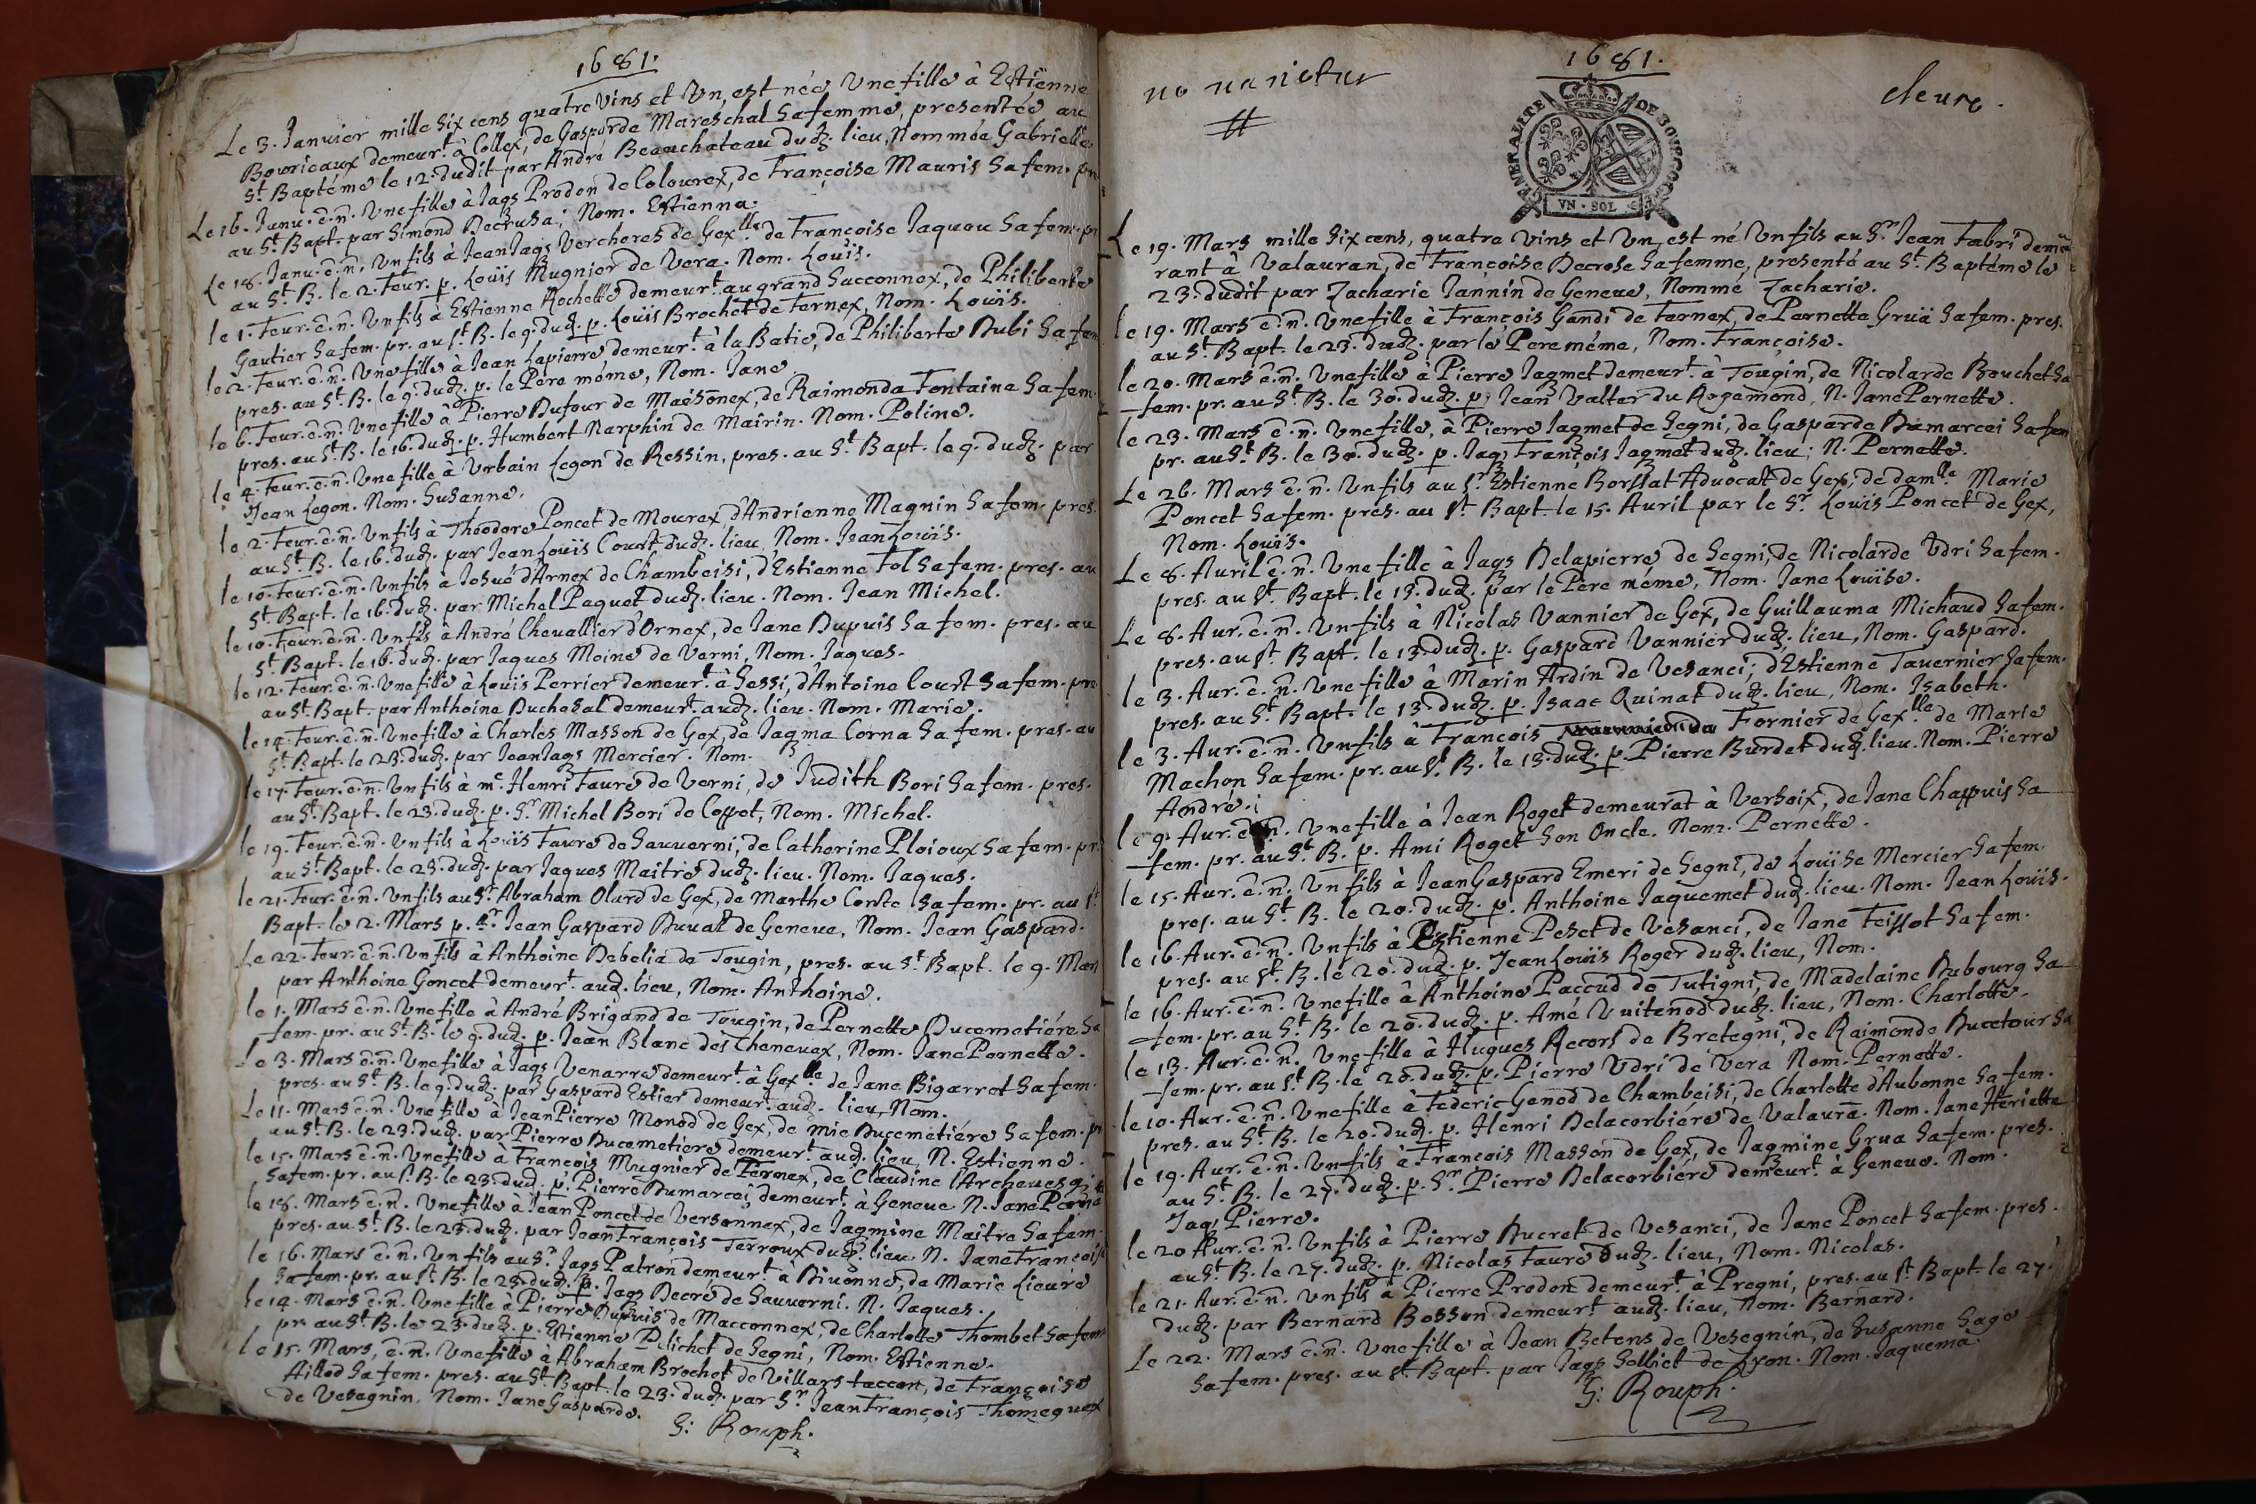 1681.
Le 3. Janvier mille six cens quatre vins et Vn, est née Vne fille à Estienne
Bourieaux demeur.t à Collex, de Gasparde Mareschal sa femme, presentée au
S.t Baptéme le 12. dudit par André Beauchateau dud. lieu, Nommée Gabrielle.
Le 16. Janu. é. n. Vne fille à Jaqs Prodon de Colourex, de Françoise Mauris sa fem. pr.
au S.t Bapt. par Simond Decrusa; Nom. Estienna.
Le 18. Janu. é. n. Vn fils à Jean Jaqs Vercheres de Gex.lle de Francoise Jaquou sa fem. pr
au S.t B. le 2. feur. p. Louïs Mugnier de Vera. Nom. Louïs.
le 1. feur. é. n. Vn fils à Estienne Rochette demeur.t au grand Sacconnex, de Philiberte
Gautier sa fem. pr. au S.t B. le 9. dud. p. Louïs Brochet de Fernex, Nom. Louïs.
le 2. feur. é. n. Vne fille à Jean Lapierre demeur.t à la Batie, de Philiberte Dubi sa fem
pres. au S.t B. le 9. dud. p. le Pere méme, Nom. Jane.
le 6. feur. é. n. Vne fille à Pierre Dufour de Maisonex, de Raimonda Fontaine sa fem.
pres. au S.t B. le 16. dud. p. Humbert Narphin de Mairin. Nom. Poline.
le 4. feur. é. n. Vne fille à Vrbain Legon de Ressin, pres. au S.t Bapt. le 9. dud. par
Jean Legon. Nom. Susanne.
le 2. feur. é. n. Vn fils à Théodore Poncet de Mourex, d'Andrienne Magnin sa fem. pres.
au S.t B. le 16. dud. par Jean Louïs Court dud. lieu, Nom. Jean Louïs.
le 10. feur. é. n. Vn fils à Josué d'Arnex de Chambeisi, d'Estienne Fol sa fem. pres. au
S.t Bapt. le 16. dud. par Michel Paquet dud. lieu. Nom. Jean Michel.
le 10. feur. é. n. Vn fils à André Cheuallier d'Ornex, de Jane Dupuis sa fem. pres. au
S.t Bapt. le 16. dud. par Jaques Moine de Verni, Nom. Jaques.
le 12. feur. é. n. Vne fille à Louïs Perrier demeur.t à Sessi, d'Antoine Court sa fem. pre
au S.t Bapt. par Anthoine Duchosal demeur.t aud. lieu. Nom. Marie.
le 14. feur. é. n. Vne fille à Charles Masson de Gex, de Jaqma Corna sa fem. pres. au
S.t Bapt. le 23. dud. par Jean Jaqs Mercier. Nom.
le 17. feur. é. n. Vn fils à m.e Henri Faure de Verni, de Judith Bori sa fem. pres.
au S.t Bapt. le 23. dud. p. S.r Michel Bori de Coppet, Nom. Michel.
le 19. feur. é. n. Vn fils à Louïs Faure de Sauuerni, de Catherine Ploioux sa fem. pr.
au S.t Bapt. le 23. dud. par Jaques Maitre dud. lieu. Nom. Jaques.
le 21. feur. é. n. Vn fils au S.r Abraham Olard de Gex, de Marthe Conte sa fem. pr. au S.t
Bapt. le 2. Mars p. S.r Jean Gaspard Duual de Geneue, Nom. Jean Gaspard.
Le 22. feur. é. n. Vn fils à Anthoine Debelia de Tougin, pres. au S.t Bapt. le 9. Mars
par Anthoine Goncet demeur.t aud. lieu, Nom. Anthoine.
le 1. Mars é. n. Vne fille à André Brigand de Tougin, de Pernette Ducemetiére sa
fem. pr. au S.t B. le 9. dud. p. Jean Blanc des Cheneuex, Nom. Jane Pernette.
Le 3. Mars é. n. Vne fille à Jaqs Venarre demeur.t à Gex.lle de Jane Bigarret sa fem.
pres. au S.t B. le 9. dud. par Gaspard Estier demeur.t aud. lieu, Nom.
Le 11. Mars é. n. Vne fille à Jean Pierre Monod de Gex, de Mie Ducemetiére sa fem. pr
au S.t B. le 23. dud. par Pierre Ducemetiere demeur.t aud. lieu, N. Estienne.
le 15. Mars é. n. Vne fille à François Mugnier de Fernex, de Claudine l'Archeuesq;
sa fem. pr. au S.t B. le 23. dud. p. Pierre Dumarcei demeur.t à Geneue N. Jane Perne
le 18. Mars é. n. Vne fille à Jean Poncet de Versonnex, de Jaqmine Maitre sa fem.
pres. au S.t B. le 23. dud. par Jean François Terroux dud. lieu N. Jane Françoise
le 16. Mars é. n. Vn fils au S.r Jaqs Patron demeur.t à Diuonne, de Marie Lieure
sa fem. pr. au S.t B. le 23. dud. p. Jaqs Decré de Sauuerni. N. Jaques.
le 14. Mars é. n. Vne fille à Pierre Dupuis de Macconnex, de Charlotte Thombet sa fem
pr. au S.t B. le 23. dud. p. Estienne Pelichet de Segni, Nom. Estienne.
Le 15. Mars, é. n. Vne fille à Abraham Brochet de Villars taccon, de Françoise
Aillod sa fem. pres. au S.t Bapt. le 23. dud. par S.r Jean François Thomeguex
de Vesegnin, Nom. Jane Gasparde.
G: Rouph.
1681.
ne varietur
cleurc.
GENERALITE DE BOURGOG
VN · SOL
Le 19. Mars mille six cens, quatre vins et Vn, est né Vn fils au S.r Jean Fabri demeu
rant à Valauran, de Françoise Decrose sa femme, presenté au S.t Baptéme le
23. dudit par Zacharie Jannin de Geneue, Nommé Zacharie.
le 19. Mars é. n. Vne fille à François Gandi de Fernex, de Pernette Gruä sa fem. pres.
au S.t Bapt. le 23. dud. par le Pere méme, Nom. Françoise.
le 20. Mars é. n. Vne fille à Pierre Jaqmet demeur.t à Tougin, de Nicolarde Bouchet sa
fem. pr. au S.t B. le 30. dud. p. Jean Valter du Rogemond, N. Jane Pernette.
le 23. Mars é. n. Vne fille, à Pierre Jaqmet de Segni, de Gasparde Dumarcei sa fem
pr. au S.t B. le 30. dud. p. Jaq, François Jaqmet dud. lieu; N. Pernette.
Le 26. Mars é. n. Vn fils au S.r Estienne Borssat Aduocat de Gex, de dam.lle Marie
Poncet sa fem. pres. au S.t Bapt. le 15. Auril par le S.r Louïs Poncet de Gex,
Nom. Louïs.
Le 8. Auril é. n. Vne fille à Jaqs Delapierre de Segni, de Nicolarde Vdri sa fem.
pres. au S.t Bapt. le 13. dud. par le Pere méme, Nom. Jane Louïse.
Le 8. Aur. é. n. Vn fils à Nicolas Vannier de Gex, de Guillauma Michaud sa fem.
pres. au S.t Bapt. le 13. dud. p. Gaspard Vannier dud. lieu, Nom. Gaspard.
le 3. Aur. é. n. Vne fille à Marin Ardin de Vesanci; d'Estienne Tauernier sa fem.
pres. au S.t Bapt. le 13. dud. p. Isaac Quinat dud. lieu, Nom. Isabeth.
le 3. Aur. é. n. Vn fils à François Fornier de Gex.lle de Marie
Machon sa fem. pr. au S.t B. le 13. dud. p. Pierre Burdet dud. lieu. Nom. Pierre
André.
le 9. Aur. é. n. Vne fille à Jean Roget demeurat à Versoix, de Jane Chappuis sa
fem. pr. au S.t B. p. Ami Roget son Oncle. Nom. Pernette.
le 15. Aur. é. n. Vn fils à Jean Gaspard Emeri de Segni, de Louïse Mercier sa fem.
pres. au S.t B. le 20. dud. p. Anthoine Jaquemet dud. lieu. Nom. Jean Louïs.
le 16. Aur. é. n. Vn fils à Estienne Peset de Vesanci, de Jane Teissot sa fem.
pres. au S.t B. le 20. dud. p. Jean Louïs Roger dud. lieu, Nom.
le 16. Aur. é. n. Vne fille à Anthoine Paccud de Tutigni, de Madelaine Dubourg sa
fem. pr. au S.t B. le 20. dud. p. Amé Vuitenod dud. lieu, Nom. Charlotte.
le 13. Aur. é. n. Vne fille à Hugues Recors de Bretegni, de Raimonde Ducetour sa
fem. pr. au S.t B. le 20. dud. p. Pierre Vdri de Vera Nom. Pernette.
le 10. Aur. é. n. Vne fille à Federic Genod de Chambeisi, de Charlotte d'Aubonne sa fem.
pres. au S.t B. le 20. dud. p. Henri Delacorbiére de Valaurã. Nom. Jane Heriette
le 19. Aur. é. n. Vn fils à François Masson de Gex, de Jaqmine Grua sa fem. pres.
au S.t B. le 27. dud. p. S.r Pierre Delacorbiére demeur.t à Geneue. Nom.
Jaq, Pierre.
le 20 Aur. é. n. Vn fils à Pierre Ducret de Vesanci, de Jane Poncet sa fem. pres.
au S.t B. le 27. dud. p. Nicolas Faure dud. lieu, Nom. Nicolas.
le 21. Aur. é. n. Vn fils à Pierre Prodon demeur.t à Pregni, pres. au S.t Bapt. le 27.
dud. par Bernard Bosson demeur.t aud. lieu, Nom. Bernard.
Le 22. Mars é. n. Vne fille à Jean Betens de Vesegnin, de Susanne Sage
sa fem. pres. au S.t Bapt. par Jaqs Solliet de Lyon. Nom. Jaquema
G: Rouph.